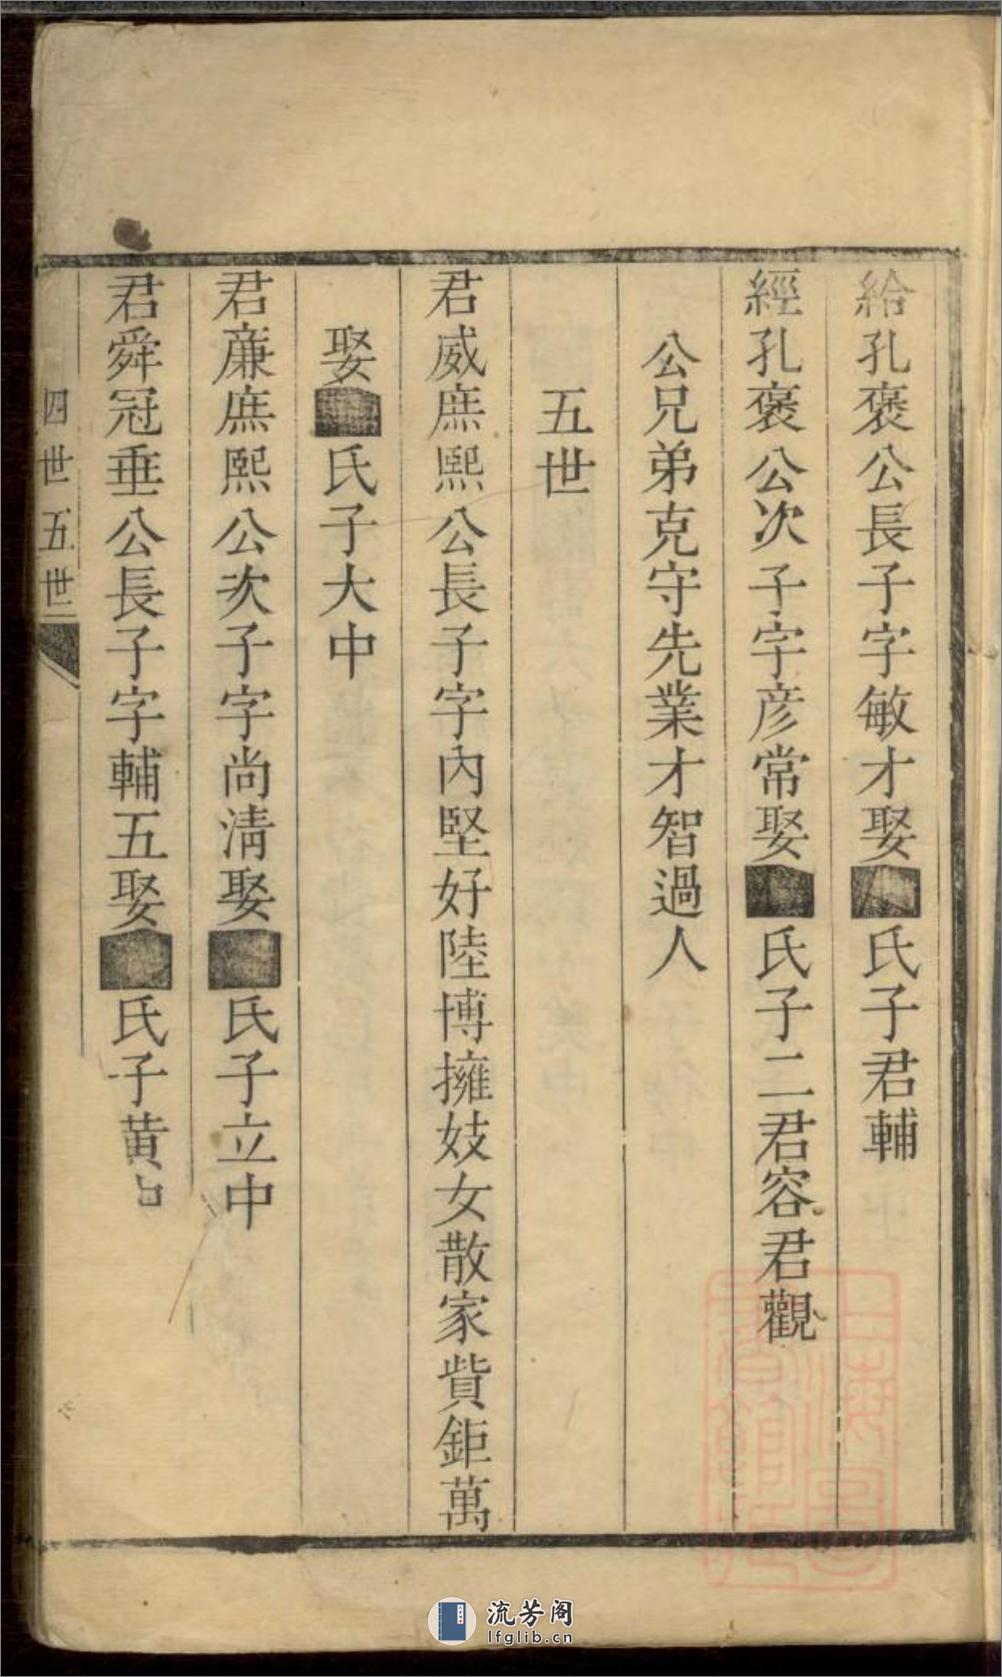 給孔褒公長子字敏才娶■氏子君輔
經孔褒公次子字彦常娶■氏子二君容君觀
公兄弟克守先業才智過人
五世
君威庶熙公長子字內堅好陸博擁妓女散家貲鉅萬
娶■氏子大中
君亷庶熙公次子字尚淸娶■氏子立中
君舜冠垂公長子字輔五娶■氏子黄中
四世五世
流芳阁
lfglib.cn